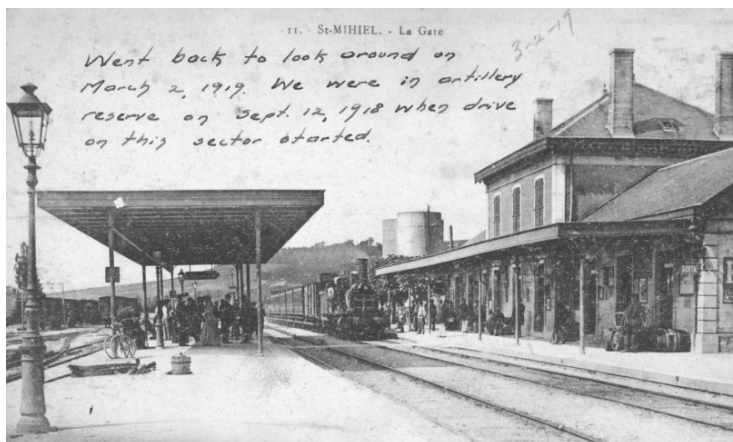 11. St-MIHIEL. - La Gare
3-2-19
Went back to look around on
March 2, 1919. We were in artillery
reserve on Sept. 12, 1918 when drive
on this sector started.